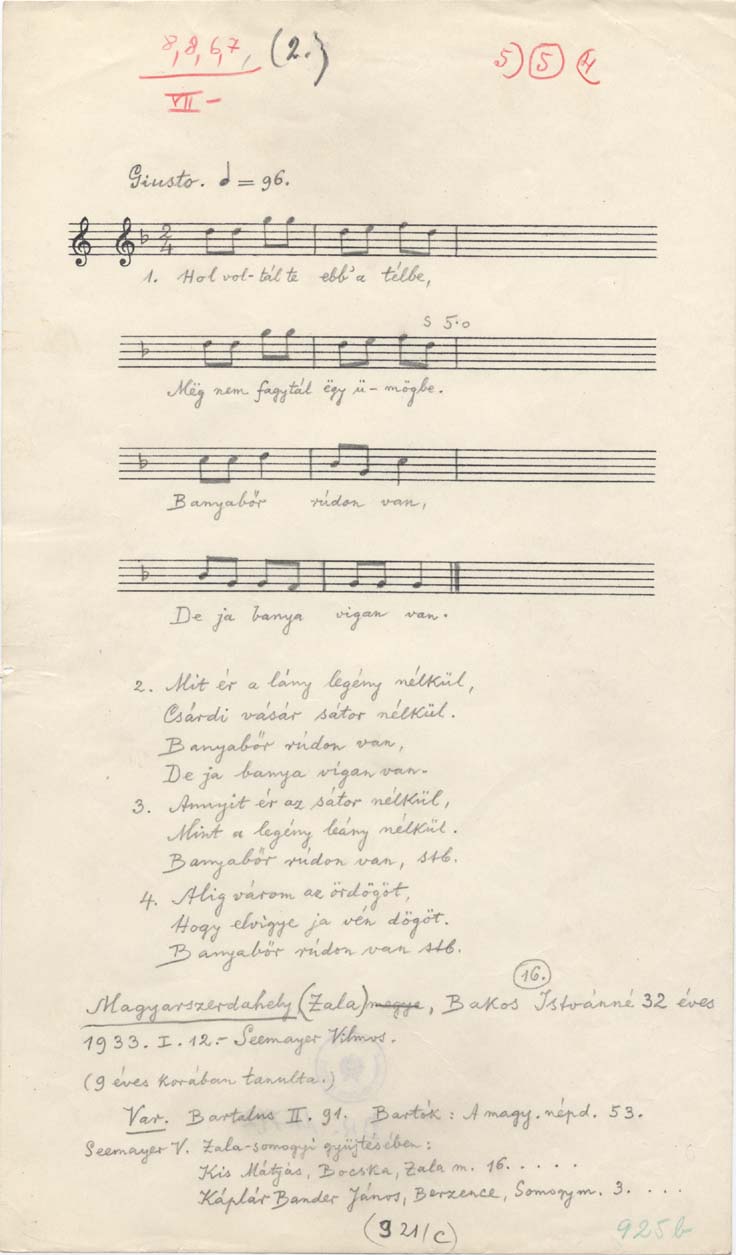 8, 8, 6, 7, (2.) 5) 5 4
VII-
Giusto. = 96.
2
4
1. Hol vol-tál te ebb'a télbe,
s 5.0
Még nem fagytál ëgy ü-mögbe.
Banyabőr rúdon van,
De ja banya vigan van.
2. Mit ér a lány legény nélkül,
Csárdi vásár sátor nélkül.
Banyabőr rúdon van,
De ja banya vígan van.
3. Annyit ér az sátor nélkül,
Mint a legény leány nélkül.
Banyabőr rúdon van, stb.
4. Alig várom az ördögöt,
Hogy elvigye ja vén dögöt.
Banyabőr rúdon van stb.
16.
Magyarszerdahely (Zala) megye, Bakos Istvánné 32 éves
1933. I. 12.- Seemayer Vilmos.
(9 éves korában tanulta.)
Var. Bartalus II. 91. Bartók: A magy. népd. 53.
Seemayer V. Zala-somogyi gyüjtésében:
Kis Mátjás, Bocska, Zala m. 16. . . . .
Káplár Bander János, Berzence, Somogy m. 3. . . .
(921/c) 925b